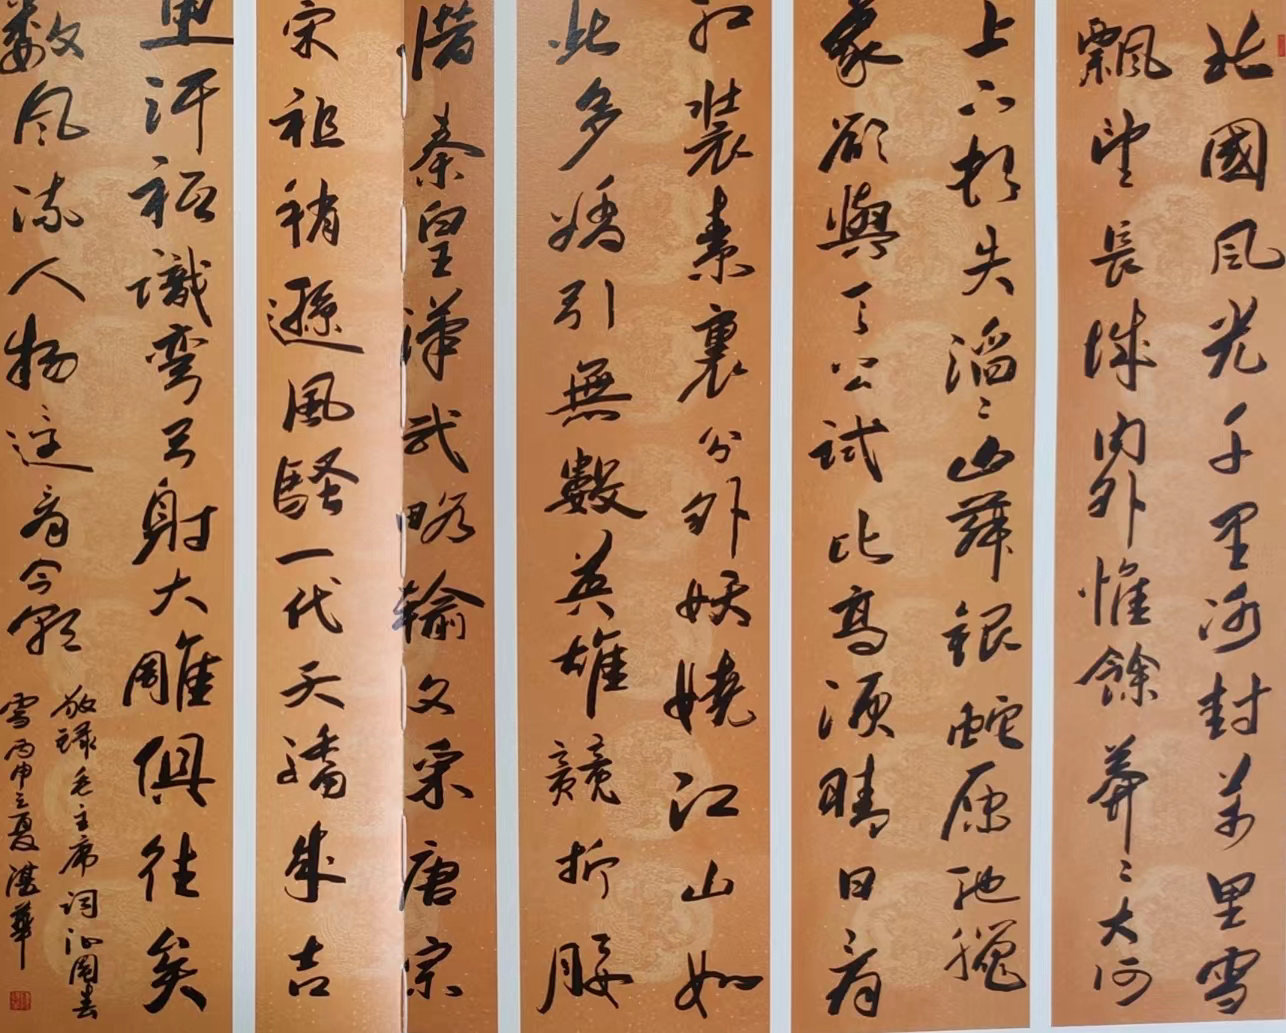 北國风光千里冰封万里雪
飄望長城内外惟餘莽〻大河
上下頓失滔〻山舞銀蛇原馳蠟
象欲與天公試比高須晴日看
紅裝素裹分外妖嬈江山如
此多嬌引無數英雄競折腰
惜秦皇漢武略輸文采唐宗
宋祖稍遜風騷一代天驕成吉
思汗祇識彎弓射大雕俱往矣
數风流人物還看今朝
敬録毛主席词沁園春
雪丙申之夏湛華